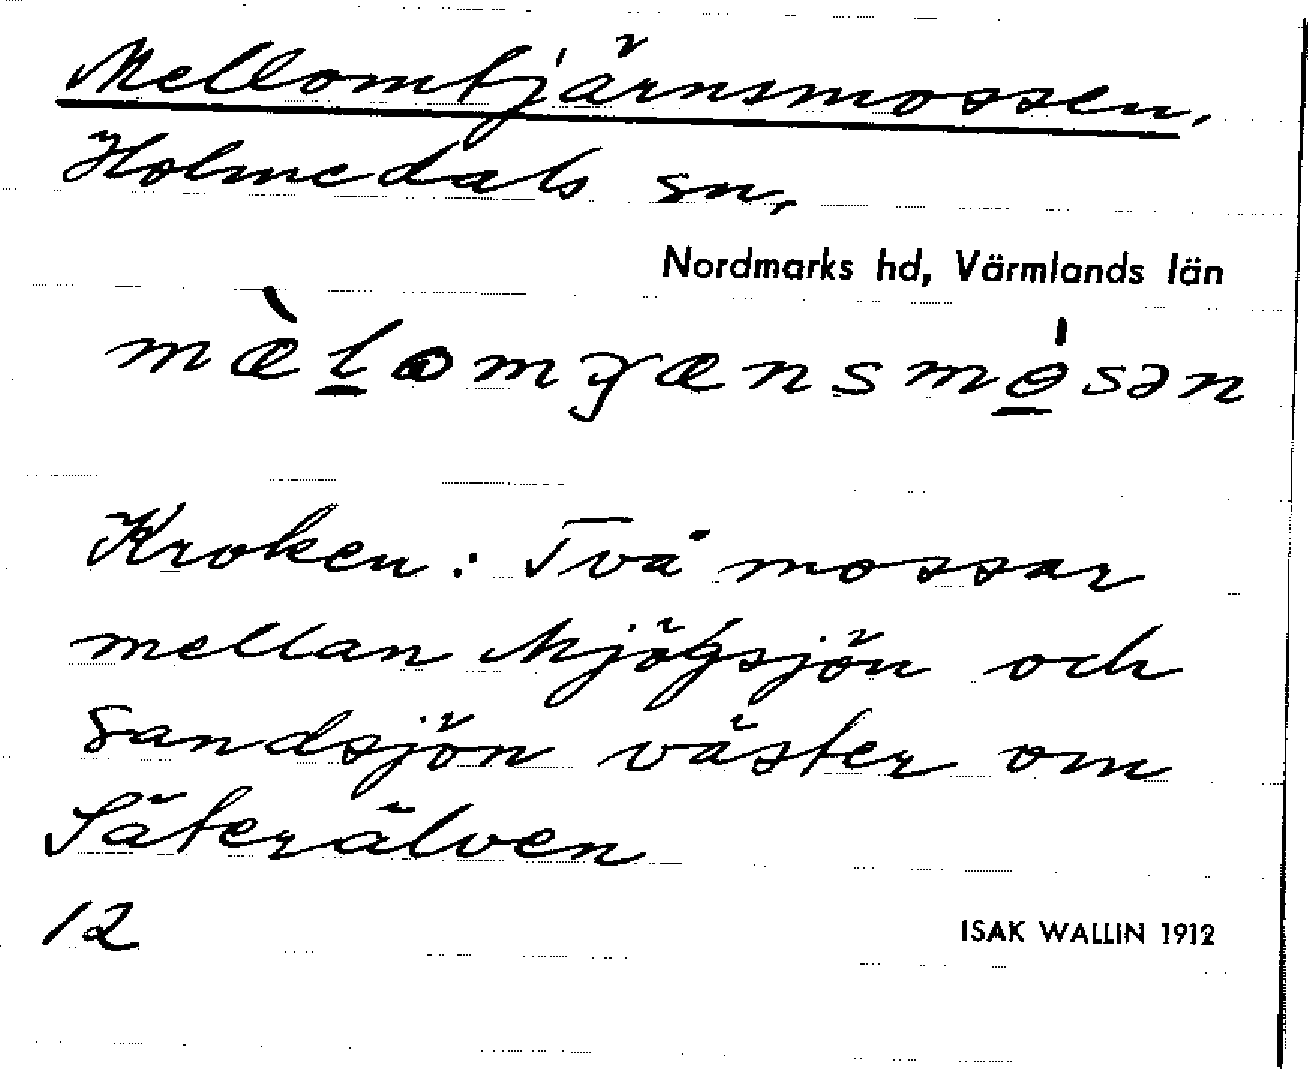 Mellomtjärnsmossen,
Holmedals sn,
Nordmarks hd, Värmlands län
mæ̀l̲omȷænsmó̲sən
Kroken: Två mossar
mellan Mjögsjön och
Sandsjön väster om
Säterälven
12
ISAK WALLIN 1912